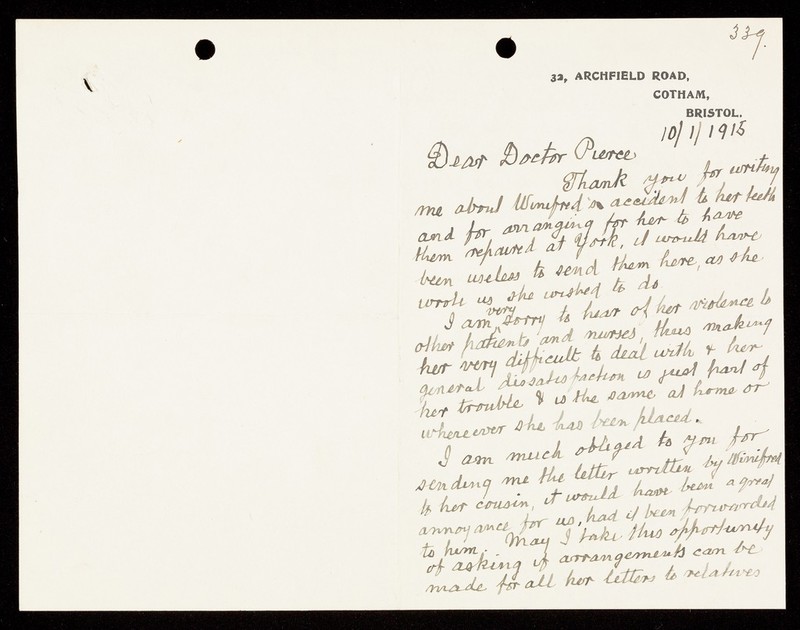 339.
32, ARCHFIELD ROAD,
COTHAM,
BRISTOL.
10/1/1915
Dear Doctor Pierce
Thank you for writing
me about Winifred's accident to her teeth
and for arranging for her to have
them repaired at York, it would have
been useless to send them here, as she
wrote us she wished to do.
I am very sorry to hear of her violence to
other patients and nurses, thus making
her very difficult to deal with & her
general dissatisfaction is just part of
her trouble & is the same at home or
whereever she has been placed.
I am much obliged to you for
sending me the letter written by Winifred
to her cousin, it would have been a great
annoyance for us, had it been forwarded
to him. May I take this opportunity
of asking if arrangements can be
made for all her letters to relatives